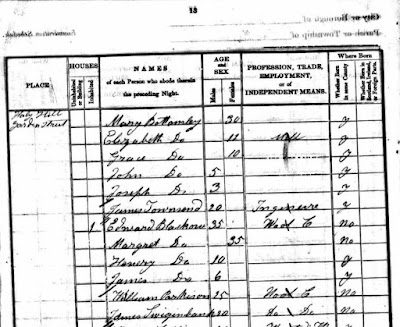 13
City or Borough of
Parish or Township of
Enumeration Schedule.
PLACE
HOUSES
Uninhabited or Building
Inhabited
NAMES
of each Person who abode therein the preceding Night.
AGE and SEX
Males
Females
PROFESSION, TRADE, EMPLOYMENT, or of INDEPENDENT MEANS.
Where Born
Whether Born in same County
Whether Born in Scotland, Ireland, or Foreign Parts.
Garden Street
Mary Bottomley 30 y
Elizabeth Do 12 Mill y
Grace Do 10 y
John Do 5 y
Joseph Do 3 y
James Townsend 20 y
1 Edward Blackow 35 Wool C No
Margret Do 35 No
Henery Do 10 y
James Do 6 y
William Parkison 25 Wool C No
James Swigenbank 20 Do Do No